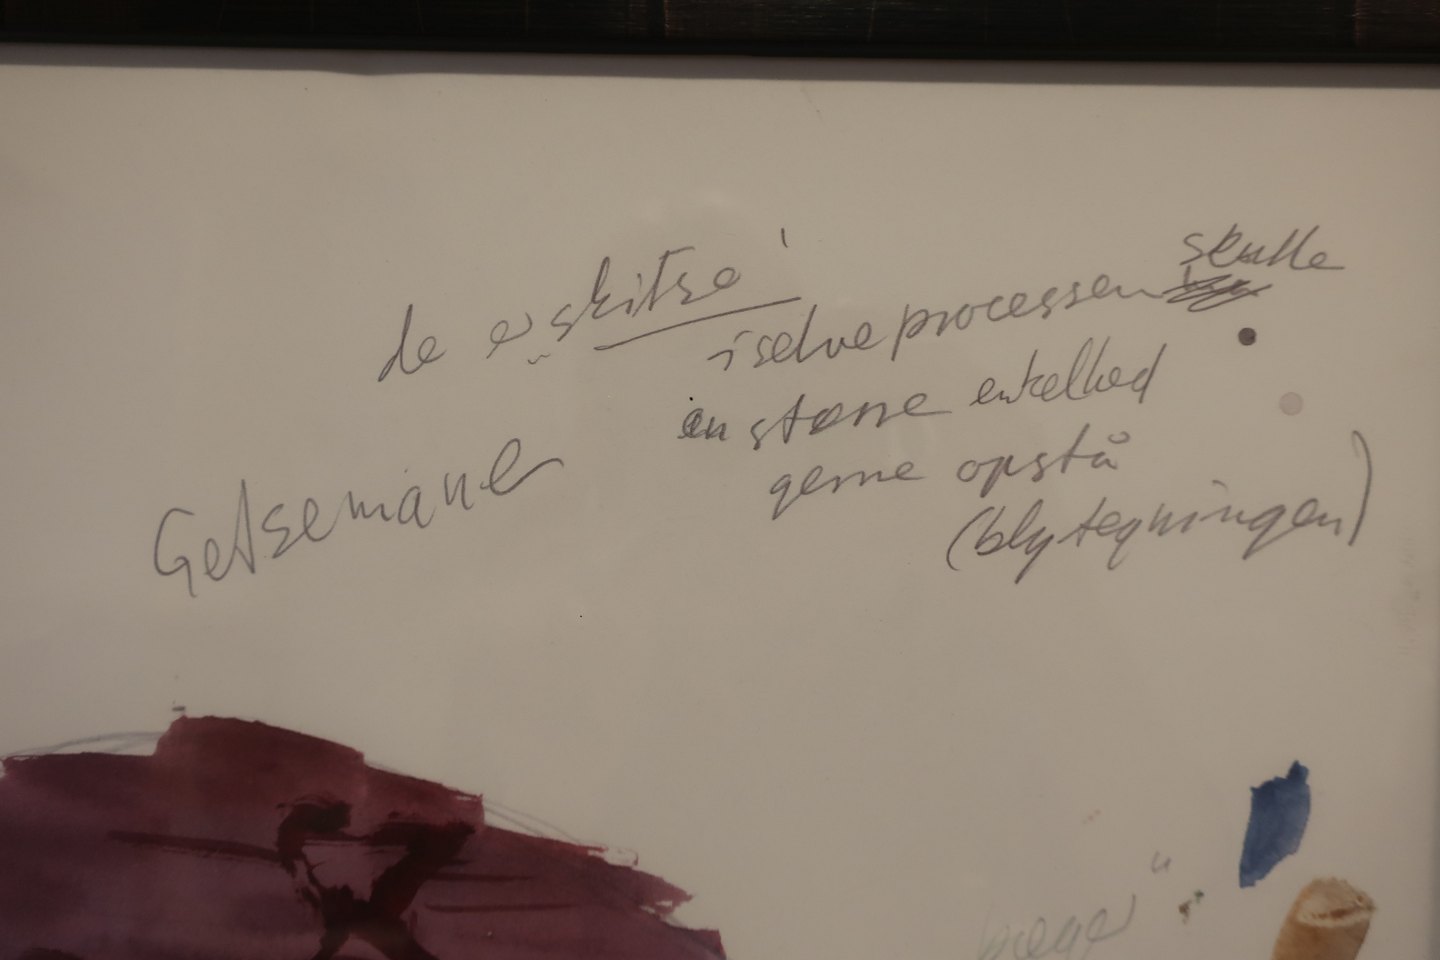 de er skitse'
i selve processen skulle
en større enkelhed
gerne opstå
(blytegningen)
Getsemane
bæger"